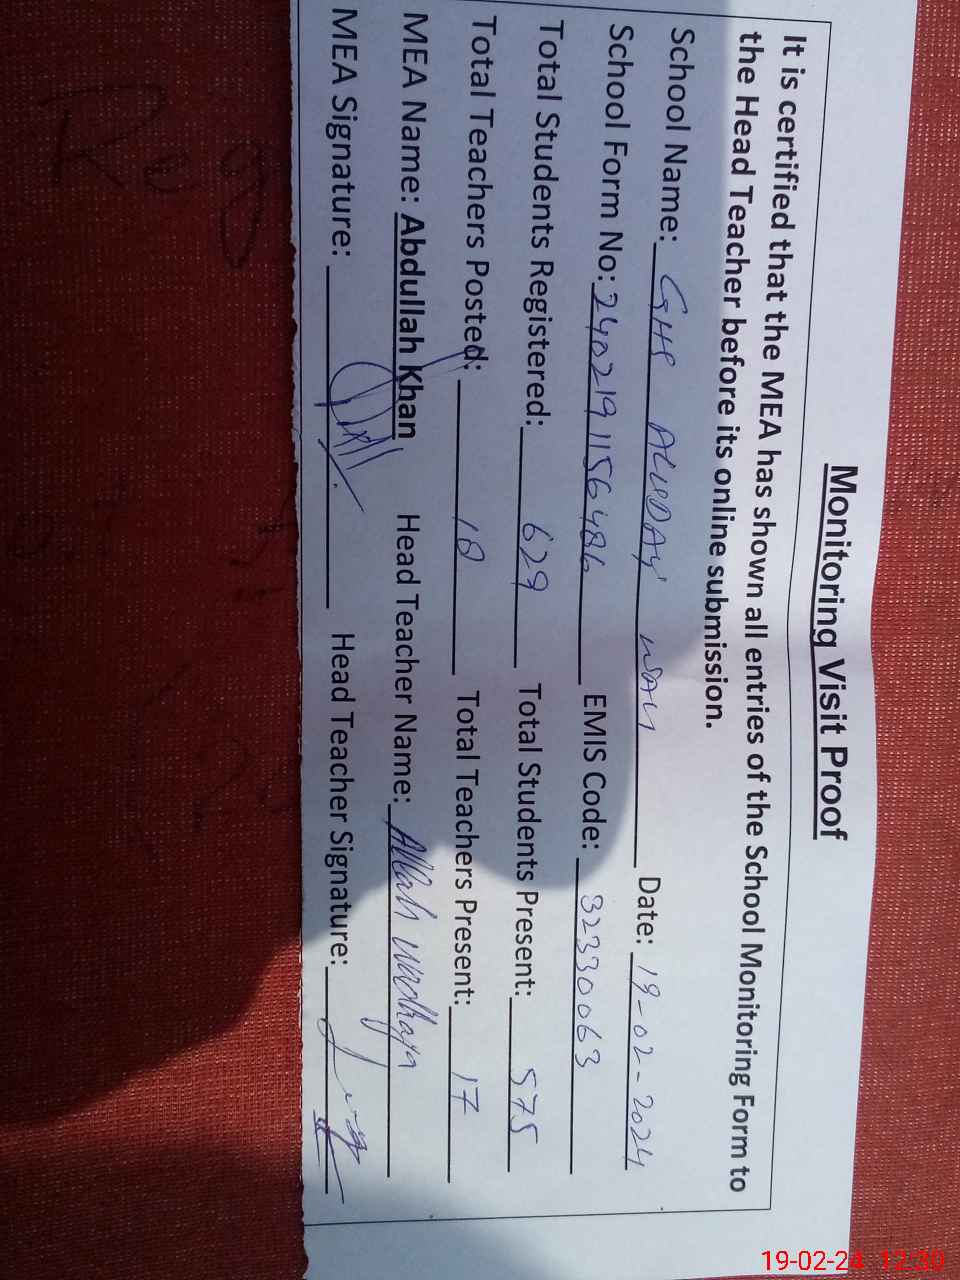 Monitoring Visit Proof
It is certified that the MEA has shown all entries of the School Monitoring Form to
the Head Teacher before its online submission.
School Name: GHS Date: 19-02-2024
School Form No: 2402191156486 EMIS Code: 32330063
Total Students Registered: 629 Total Students Present: 575
Total Teachers Posted: 18 Total Teachers Present: 17
MEA Name: Abdullah Khan Head Teacher Name: Allah Wadhaya
MEA Signature: Head Teacher Signature:
19-02-24 12:30